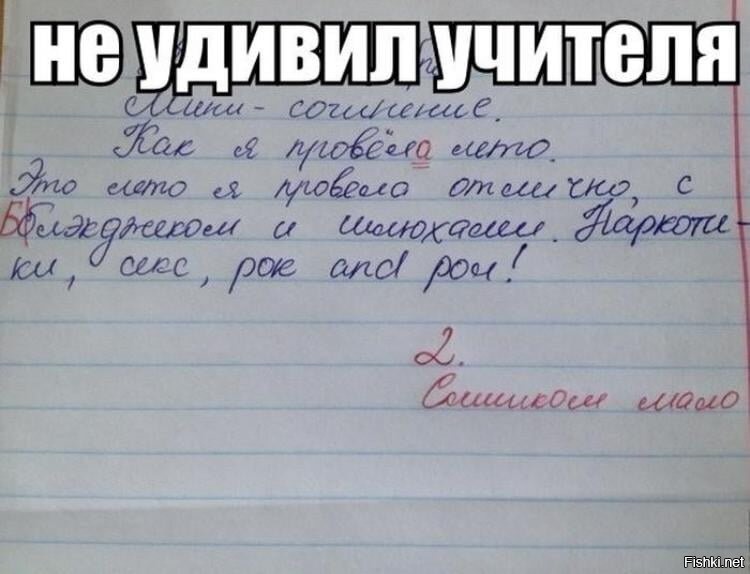 не удивил учителя
Мини-сочинение.
Как я провёла лето.
Это лето я провела отлично, с
Блэкджеком и шлюхами. Наркоти-
ки, секс, рок and рол!
2.
Слишком мало
Fishki.net